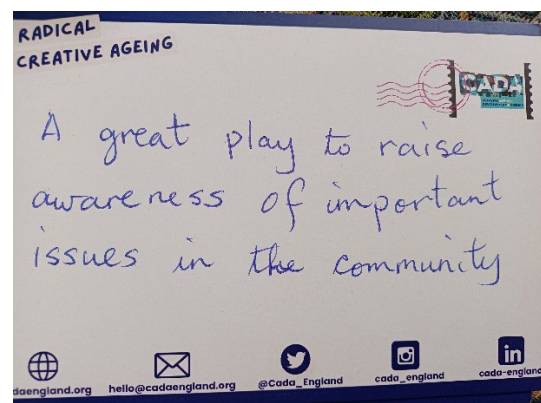 RADICAL
CREATIVE AGEING
CADA
A great play to raise
awareness of important
issues in the community
daengland.org hello@cadaengland.org @Cada_England cada_england cada-england